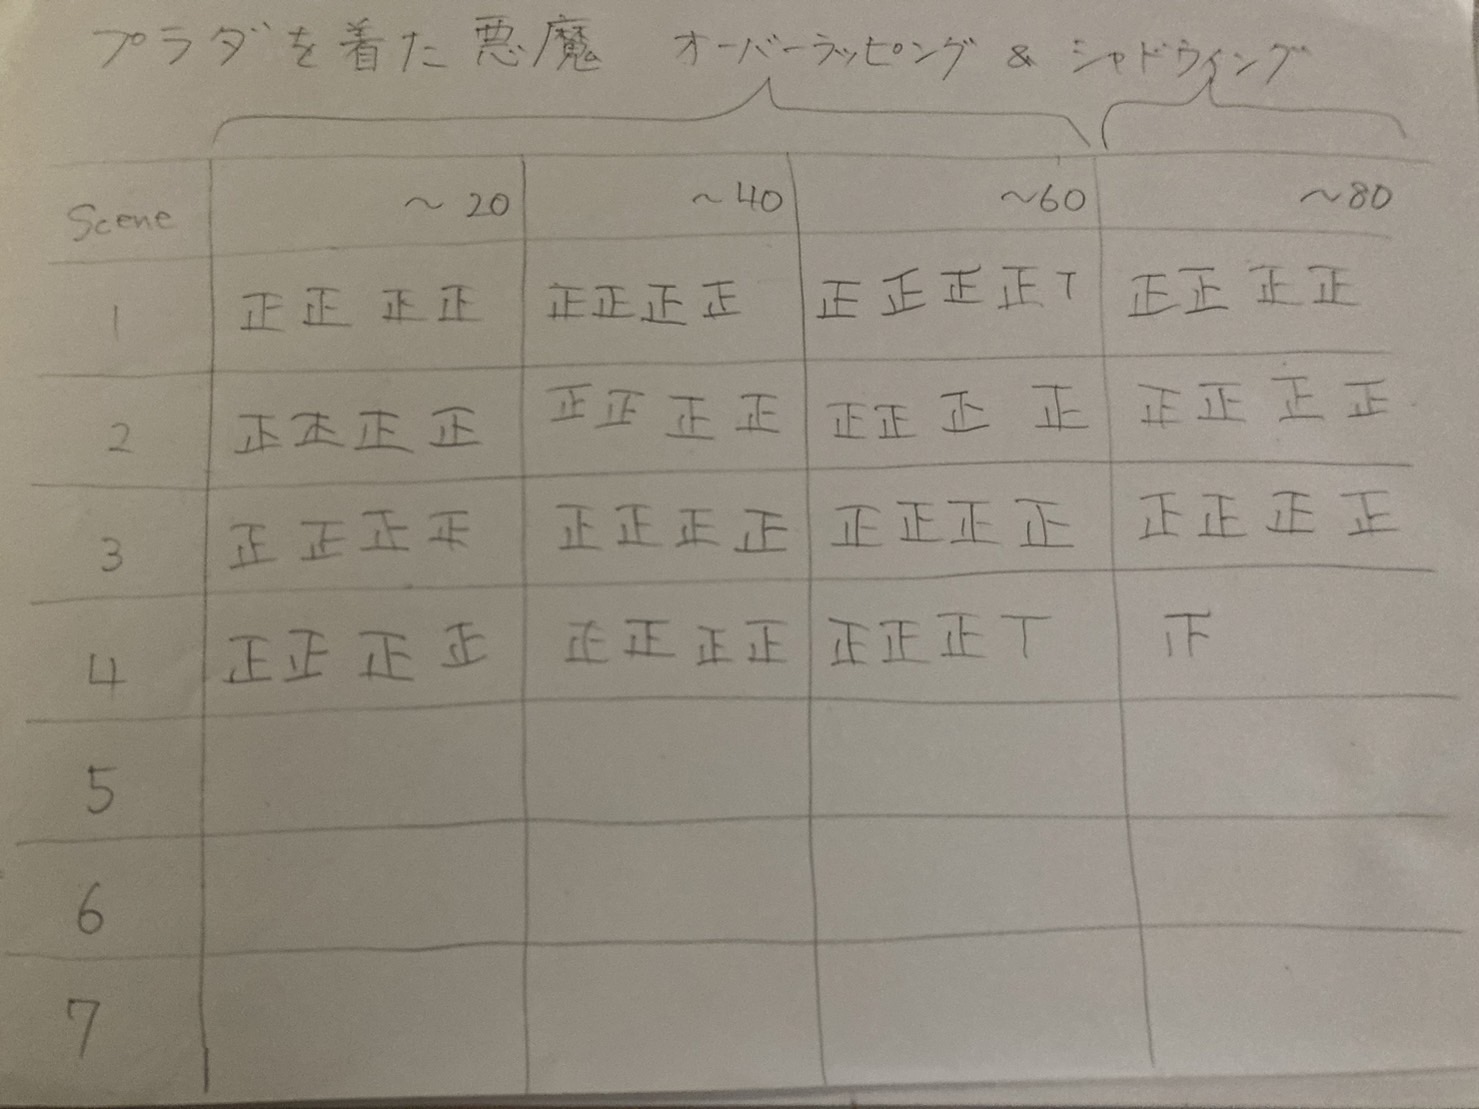 プラダを着た悪魔 オーバーラッピング & シャドウイング
Scene ~20 ~40 ~60 ~80
1 正正正正 正正正正 正正正正T 正正正正
2 正正正正 正正正正 正正正正 正正正正
3 正正正正 正正正正 正正正正 正正正正
4 正正正正 正正正正 正正正T 正
5
6
7